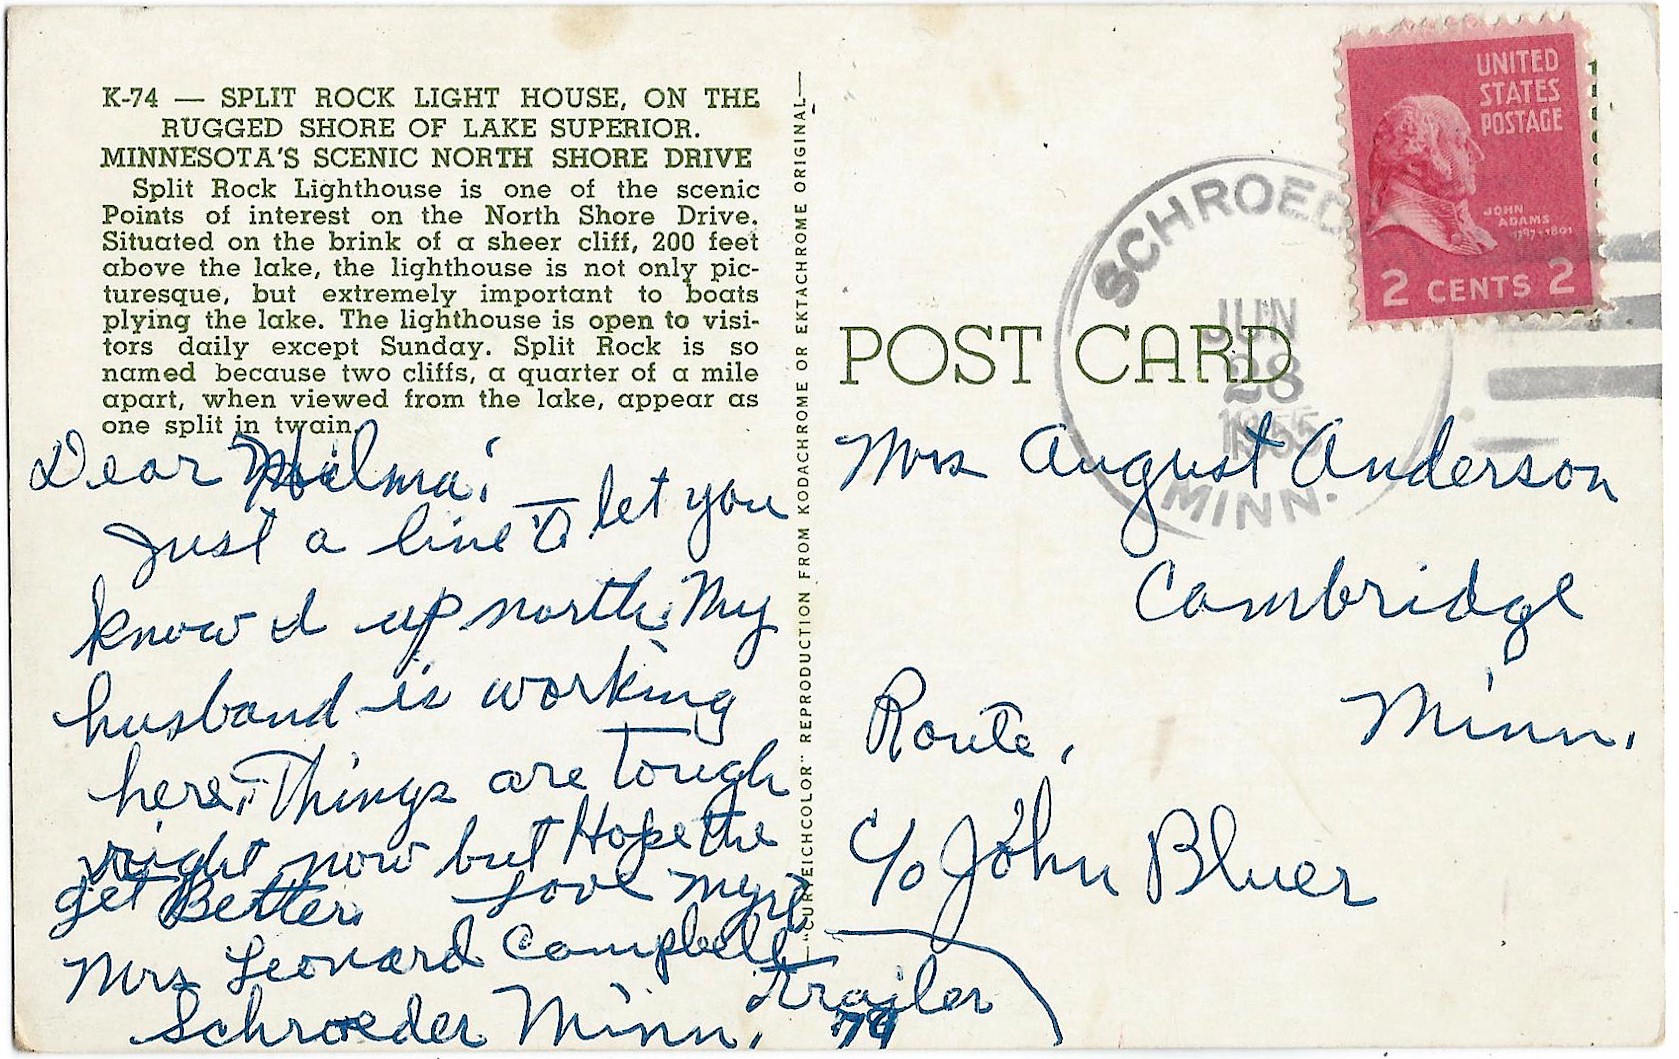 K-74 — SPLIT ROCK LIGHT HOUSE, ON THE
RUGGED SHORE OF LAKE SUPERIOR.
MINNESOTA'S SCENIC NORTH SHORE DRIVE
Split Rock Lighthouse is one of the scenic
Points of interest on the North Shore Drive.
Situated on the brink of a sheer cliff, 200 feet
above the lake, the lighthouse is not only pic-
turesque, but extremely important to boats
plying the lake. The lighthouse is open to visi-
tors daily except Sunday. Split Rock is so
named because two cliffs, a quarter of a mile
apart, when viewed from the lake, appear as
one split in twain.
Dear Hilma;
Just a line to let you
know I up north. My
husband is working
here. Things are tough
right now but Hope the
get Better. Love
Mrs Leonard Campbell
Schroeder Minn.
Trailer
79
"CURTEICHCOLOR" REPRODUCTION FROM KODACHROME OR EKTACHROME ORIGINAL
UNITED
STATES
POSTAGE
JOHN
ADAMS
1797-1801
2 CENTS 2
SCHROED
JUN
28
1955
MINN.
POST CARD
Mrs August Anderson
Cambridge
Minn.
Route,
c/o John Bluer